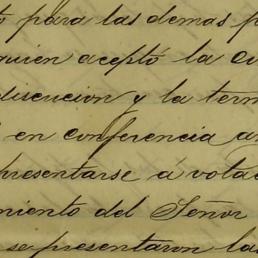 para las demas
quien aceptó la
discucion y la
en conferencia
presentarse á
miento del Señor
se presentaron